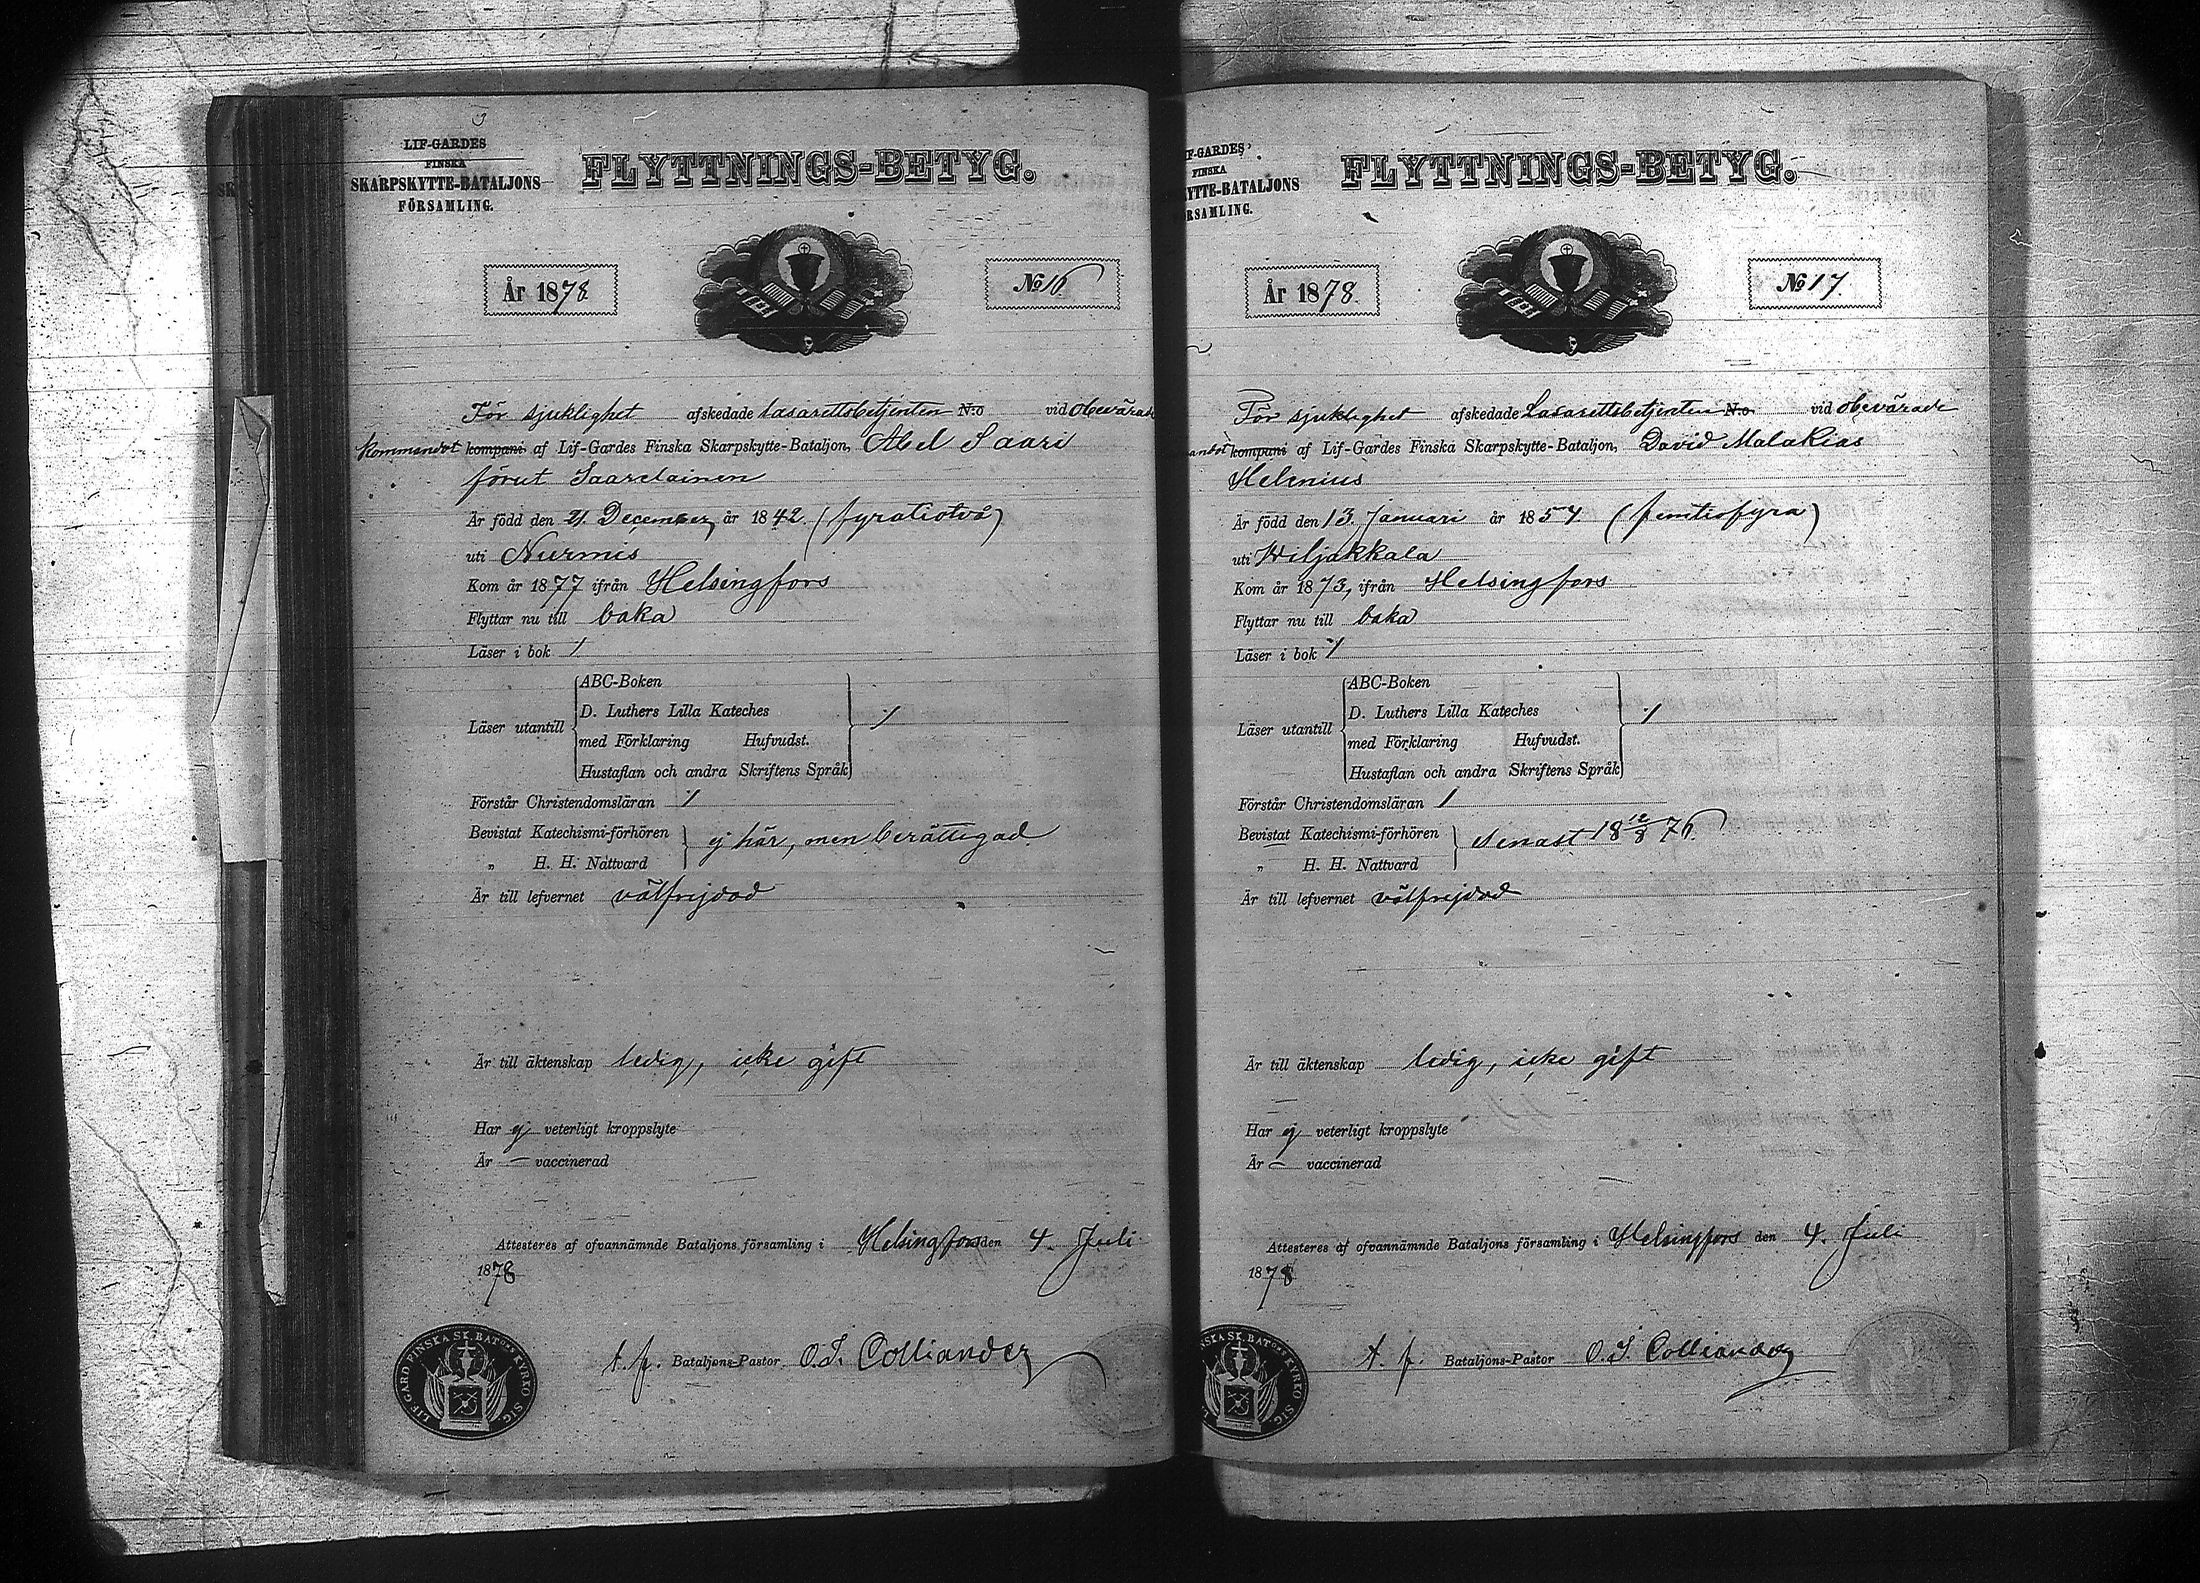 LIF-GARDES
FINSKA
SKARPSKYTTE-BATALJONS
FÖRSAMLING.
FLYTTNINGS-BETYG.
År 1878.
No 16
För sjuklighet afskedade Lasarettsbetjenten N:o vid obevärade
kommandot kompani af Lif-Gardes Finska Skarpskytte-Bataljon, Abel Saari
förut Saarelainen
Är född den 21. December, år 1842 (fyratiotvå)
uti Nurmis
Kom år 1877 ifrån Helsingfors
Flyttar nu till baka
Läser i bok 1
ABC-Boken
D. Luthers Lilla Kateches
Läser utantill med Förklaring Hufvudst. 1
Hustaflan och andra Skriftens Språk
Förstår Christendomsläran 1
Bevistat Katechismi-förhören ej här, men berättigad.
„ H. H. Nattvard
Är till lefvernet välfrejdad
Är till äktenskap ledig, icke gift
Har ej veterligt kroppslyte
Är — vaccinerad
Attesteres af ofvannämnde Bataljons församling i Helsingfors den 4. Juli
1878
t. f. Bataljons-Pastor O. I. Colliander
LIF. GARD FINSKA SK. BAT:NS KYRKO SIG.
F-GARDES
FINSKA
YTTE-BATALJONS
RSAMLING.
FLYTTNINGS-BETYG.
År 1878.
No 17.
För sjuklighet afskedade Lasarettsbetjenten N:o vid obevärade
andot kompani af Lif-Gardes Finska Skarpskytte-Bataljon, David Malakias
Helenius
Är född den 13. Januari år 1854 (femtiofyra)
uti Wiljakkala
Kom år 1873, ifrån Helsingfors
Flyttar nu till baka
Läser i bok 1
ABC-Boken
D. Luthers Lilla Kateches
Läser utantill med Förklaring Hufvudst. 1
Hustaflan och andra Skriftens Språk
Förstår Christendomsläran 1
Bevistat Katechismi-förhören senast 18 12/8 76.
„ H. H. Nattvard
Är till lefvernet välfrejdad
Är till äktenskap ledig, icke gift
Har ej veterligt kroppslyte
Är — vaccinerad
Attesteres af ofvannämnde Bataljons församling i Helsingfors den 4. Juli
1878
t. f. Bataljons-Pastor O. I. Colliander
NSKA SK. BAT:NS KYRKO SIG.